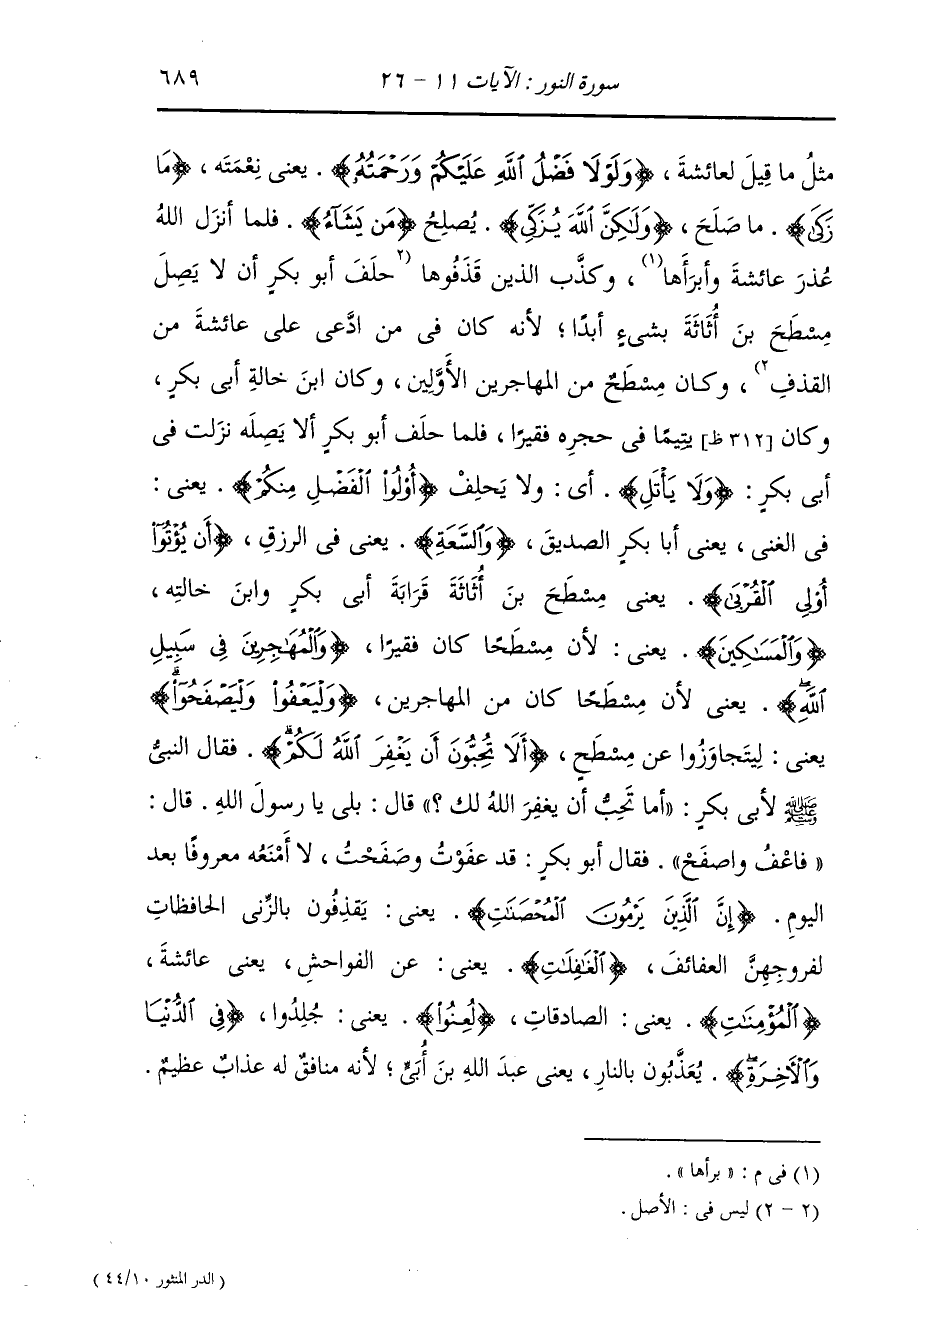 سورة النور : الآيات ١١ - ٢٦ ٦٨٩
مثلُ ما قِيلَ لعائشةَ ، ﴿وَلَوْلَا فَضْلُ ٱللَّهِ عَلَيْكُمْ وَرَحْمَتُهُۥ﴾ . يعنى نِعْمَتَه ، ﴿مَا
زَكَىٰ﴾ . ما صَلَحَ ، ﴿وَلَٰكِنَّ ٱللَّهَ يُزَكِّى﴾ . يُصلِحُ ﴿مَن يَشَآءُ﴾ . فلما أنزَل اللهُ
عُذرَ عائشةَ وأبرَأَها(١) ، وكذَّب الذين قَذَفُوها (٢حلَفَ أبو بكرٍ أن لا يَصِلَ
مِسْطَحَ بنَ أُثَاثَةَ بشىءٍ أبدًا ؛ لأنه كان فى من ادَّعى على عائشةَ من
القذفِ٢) ، وكان مِسْطَحٌ من المهاجرين الأَوَّلِين ، وكان ابنَ خالةِ أبى بكرٍ ،
وكان [٣١٢ظ] يتيمًا فى حجرِه فقيرًا ، فلما حلَف أبو بكرٍ ألا يَصِلَه نزَلت فى
أبى بكرٍ : ﴿وَلَا يَأْتَلِ﴾ . أى : ولا يَحلِفْ ﴿أُوْلُواْ ٱلْفَضْلِ مِنكُمْ﴾ . يعنى :
فى الغنى ، يعنى أبا بكرٍ الصديقَ ، ﴿وَٱلسَّعَةِ﴾ . يعنى فى الرزقِ ، ﴿أَن يُؤْتُوٓاْ
أُوْلِى ٱلْقُرْبَىٰ﴾ . يعنى مِسْطَحَ بنَ أُثَاثَةَ قَرَابَةَ أبى بكرٍ وابنَ خالتِه ،
﴿وَٱلْمَسَٰكِينَ﴾ . يعنى : لأن مِسْطَحًا كان فقيرًا ، ﴿وَٱلْمُهَٰجِرِينَ فِى سَبِيلِ
ٱللَّهِۖ﴾ . يعنى لأن مِسْطَحًا كان من المهاجرين ، ﴿وَلْيَعْفُواْ وَلْيَصْفَحُوٓاْۗ﴾
يعنى : لِيتَجاوَزُوا عن مِسْطَحٍ ، ﴿أَلَا تُحِبُّونَ أَن يَغْفِرَ ٱللَّهُ لَكُمْۗ﴾ . فقال النبىُّ
ﷺ لأبى بكرٍ : «أما تَحِبُّ أن يغفِرَ اللهُ لك ؟» قال : بلى يا رسولَ اللهِ . قال :
« فاعْفُ واصفَحْ» . فقال أبو بكرٍ : قد عفَوْتُ وصَفَحْتُ ، لا أَمْنَعُه معروفًا بعد
اليومِ . ﴿إِنَّ ٱلَّذِينَ يَرْمُونَ ٱلْمُحْصَنَٰتِ﴾ . يعنى : يَقذِفُون بالزِّنى الحافظاتِ
لفروجِهنَّ العفائفَ ، ﴿ٱلْغَٰفِلَٰتِ﴾ . يعنى : عن الفواحشِ ، يعنى عائشةَ ،
﴿ٱلْمُؤْمِنَٰتِ﴾ . يعنى : الصادقاتِ ، ﴿لُعِنُواْ﴾ . يعنى : جُلِدُوا ، ﴿فِى ٱلدُّنْيَا
وَٱلْأَخِرَةِۖ﴾ . يُعَذَّبُون بالنارِ ، يعنى عبدَ اللهِ بنَ أُبَىٍّ ؛ لأنه منافقٌ له عذابٌ عظيمٌ .
(١) فى م : « برأها» .
(٢ - ٢) ليس فى : الأصل .
( الدر المنثور ٤٤/١٠ )